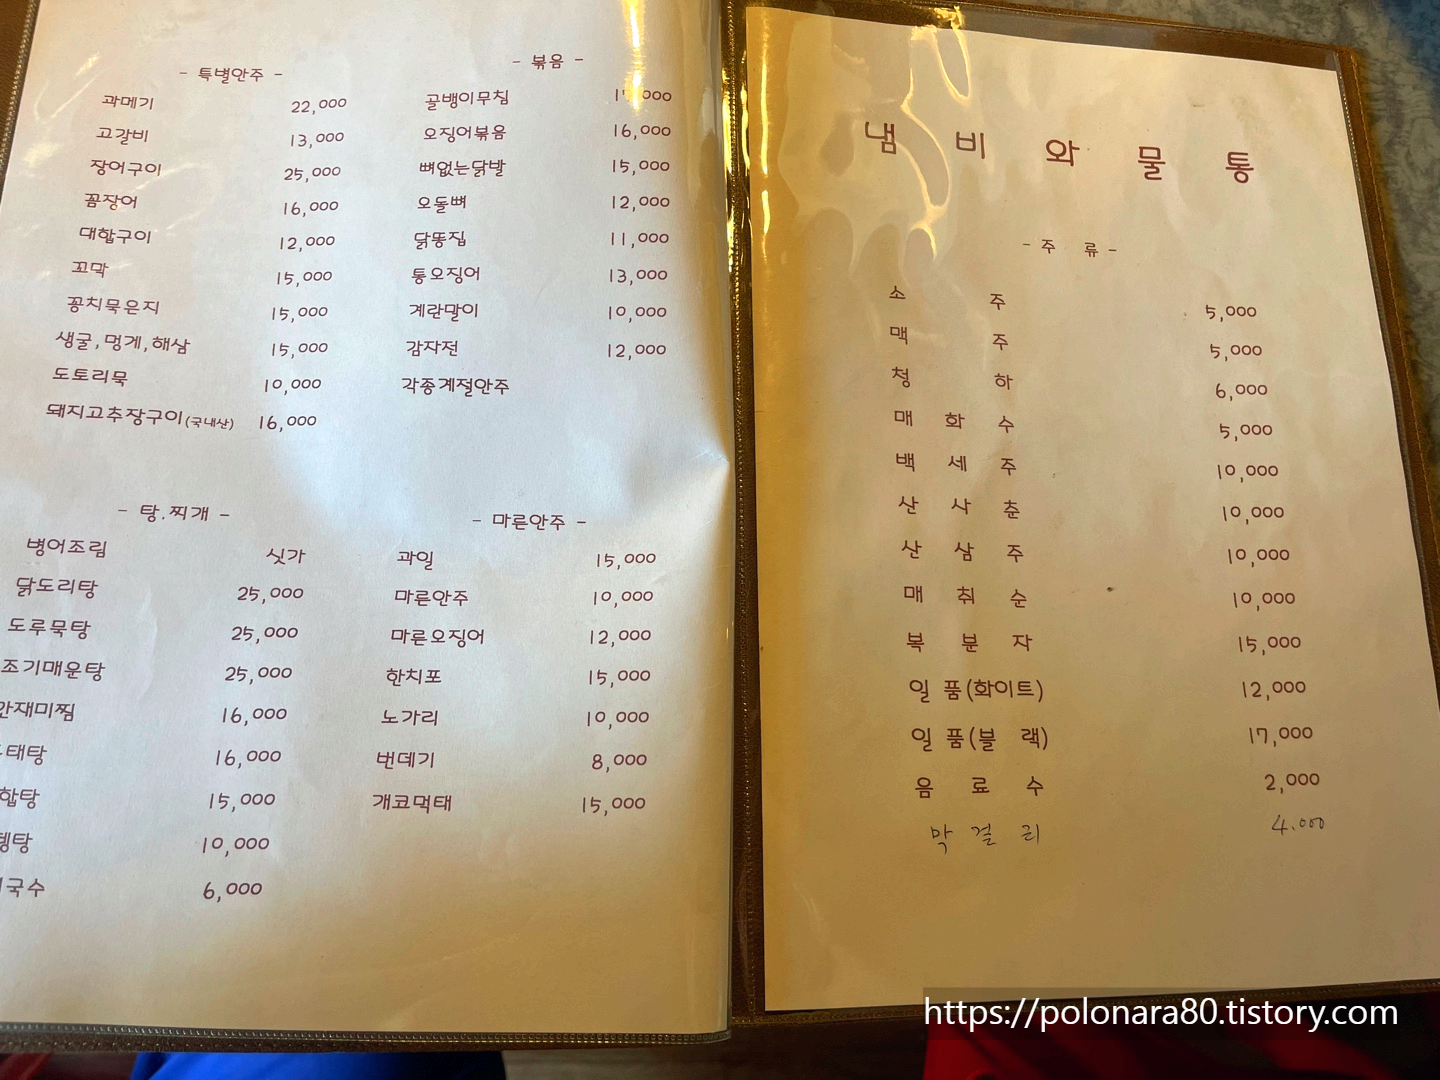 - 특별안주 -
과메기 22,000
고갈비 13,000
장어구이 25,000
꼼장어 16,000
대합구이 12,000
꼬막 15,000
꽁치묵은지 15,000
생굴,멍게,해삼 15,000
도토리묵 10,000
돼지고추장구이(국내산) 16,000
- 볶음 -
골뱅이무침
오징어볶음 16,000
뼈없는닭발 15,000
오돌뼈 12,000
닭똥집 11,000
통오징어 13,000
계란말이 10,000
감자전 12,000
각종계절안주
- 탕.찌개 -
병어조림 싯가
닭도리탕 25,000
도루묵탕 25,000
조기매운탕 25,000
간재미찜 16,000
태탕 16,000
합탕 15,000
탕 10,000
국수 6,000
- 마른안주 -
과일 15,000
마른안주 10,000
마른오징어 12,000
한치포 15,000
노가리 10,000
번데기 8,000
개코먹태 15,000
냄비와물통
- 주 류 -
소 주 5,000
맥 주 5,000
청 하 6,000
매 화 수 5,000
백 세 주 10,000
산 사 춘 10,000
산 삼 주 10,000
매 취 순 10,000
복 분 자 15,000
일 품(화이트) 12,000
일 품(블 랙) 17,000
음 료 수 2,000
막 걸 리 4.000
https://polonara80.tistory.com